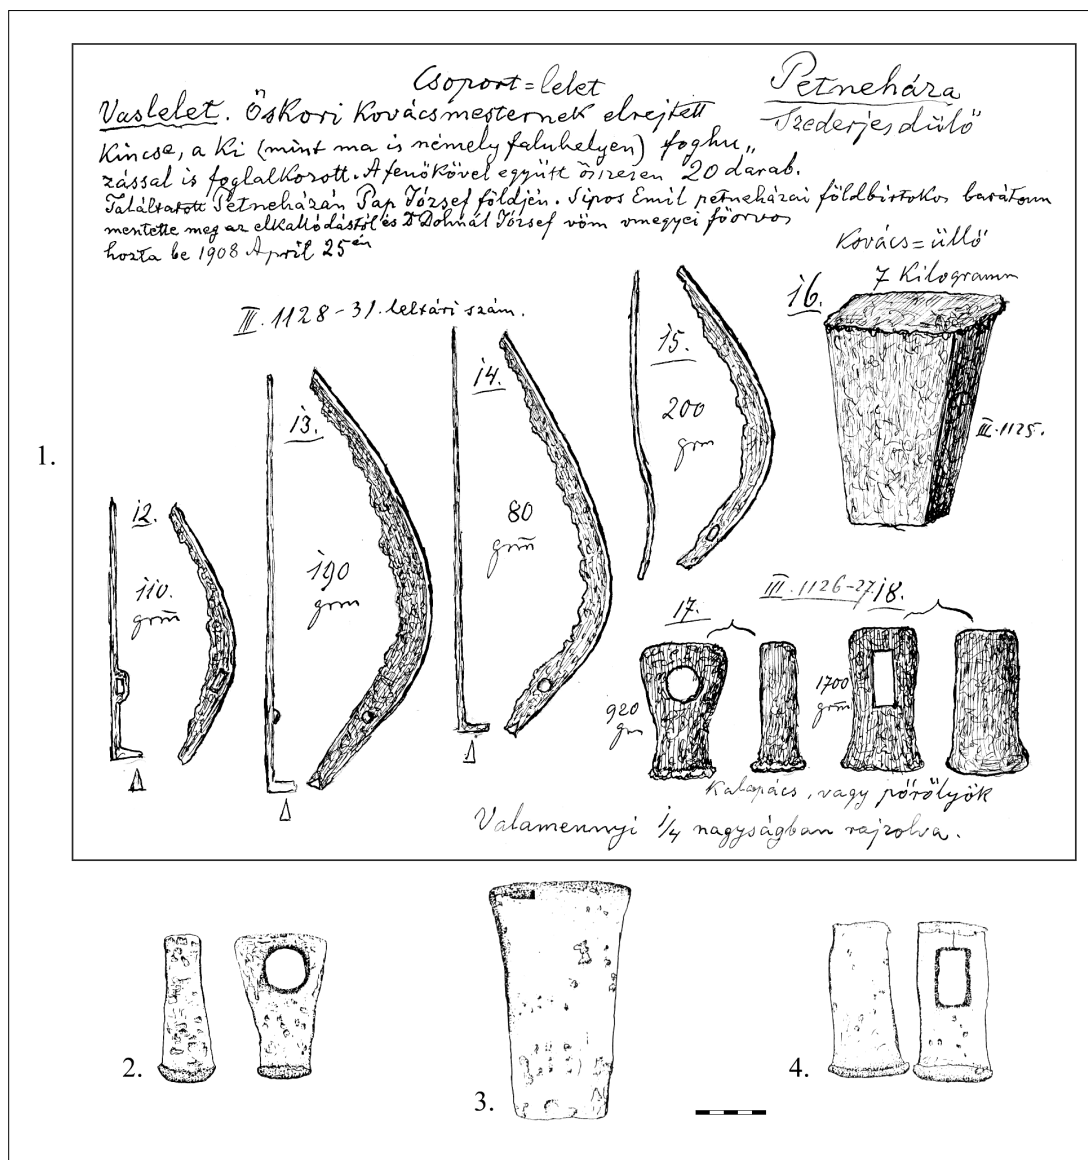 Csoport=lelet
Petneháza
Szederjes dülő
Vaslelet. Őskori Kovácsmesternek elrejtett
Kincse, a Ki (mint ma is némely faluhelyen) foghu„
zással is foglalkozott. A fenőkövel együtt összesen 20 darab.
Találtatott Petneházán Pap József földjén. Sipos Emil petneházai földbirtokos barátom
mentette meg az elkallódástól és Dr Dohnál József vöm vmegyei főorvos
hozta be 1908 April 25én
Kovács=üllő
7 Kilogramm
III. 1128-31. leltári szám.
12.
110.
grm
13.
190
grm
14.
80
grm
15.
200
grm
16.
III. 1125.
III. 1126-27.
17.
920
grm
18.
1700
grm
Kalapács, vagy pőrőlyök
Valamennyi 1/4 nagyságban rajzolva.
1.
2.
3.
4.